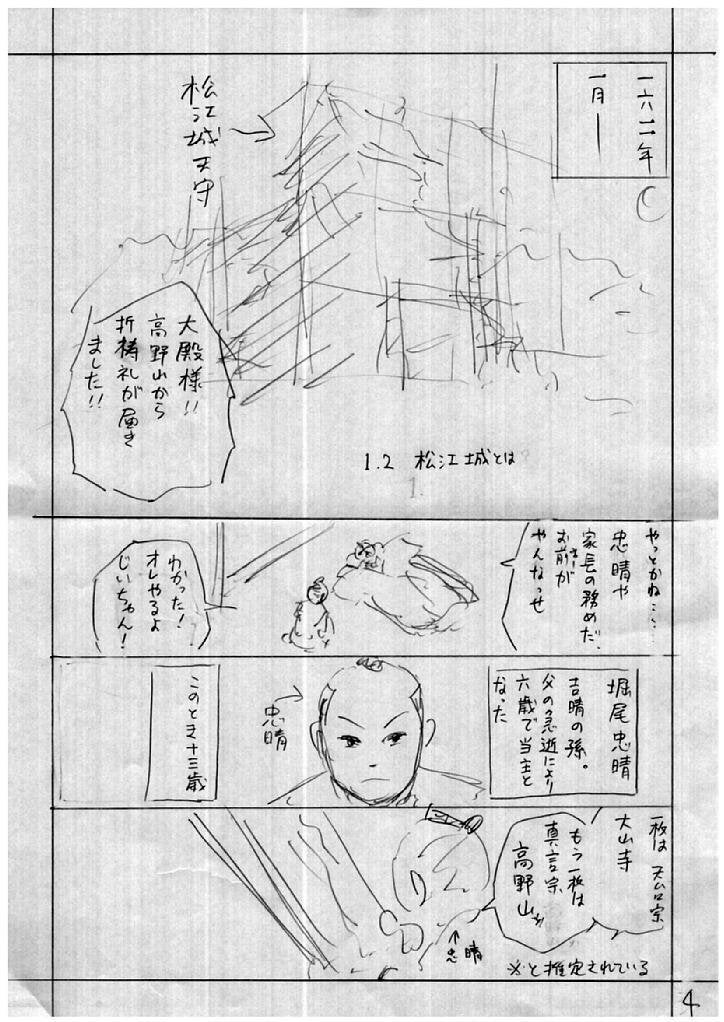 一六一一年
一月―
松江城天守
大殿様!!
高野山から
祈祷札が届き
ました!!
1.2 松江城とは
やっとかね……
忠晴や
家長の務めだ、
お前が
やんなっせ
わかった!
オレやるよ
じいちゃん!
堀尾忠晴
吉晴の孫。
父の急逝により
六歳で当主と
なった
忠晴
このとき十三歳
一枚は 天台宗
大山寺
もう一枚は
真言宗
高野山※
忠晴
※と推定されている
4